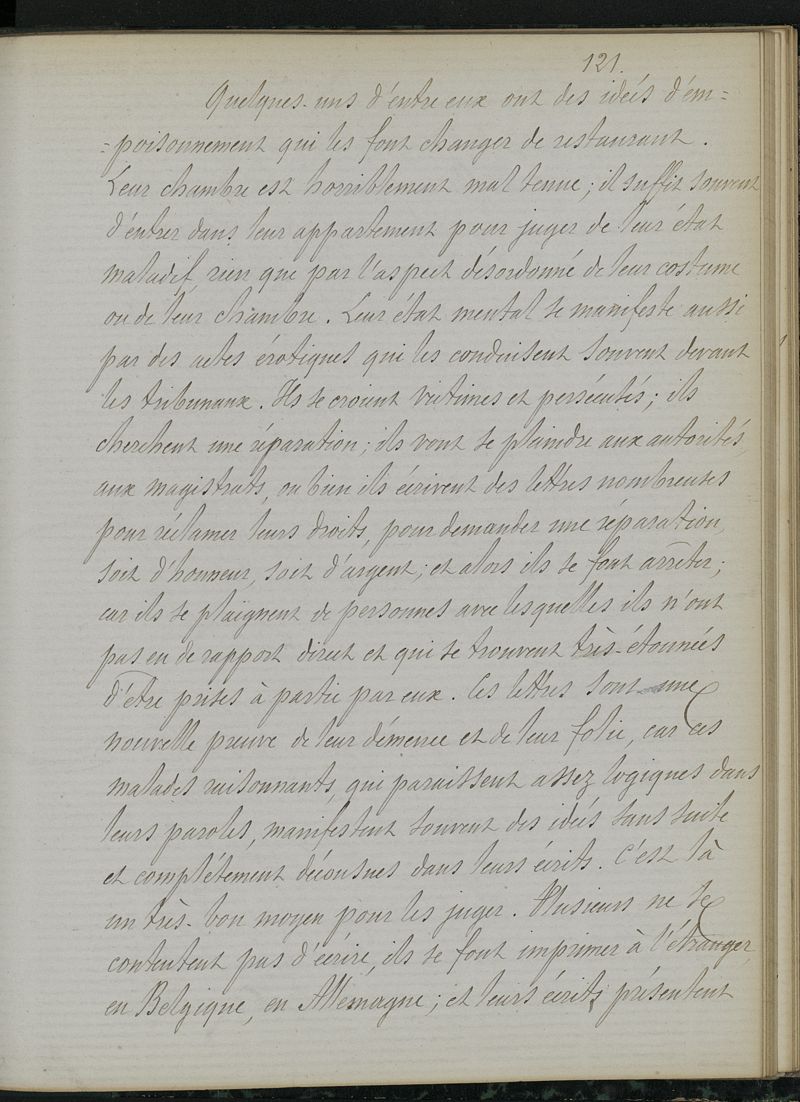 121.
Quelques-uns d'entre eux ont des ideés d'em=
=poisonnement qui les font changer de restaurant.
Leur chambre est horriblement mal tenue; il suffit souvent
d'entrer dans leur appartement pour juger de leur état
maladif, rien que par l'aspect désordonné de leur costume
ou de leur chambre. Leur état mental se manifeste aussi
par des actes érotiques qui les conduisent souvent devant
les tribunaux. Ils se croient victimes et persécutés; ils
cherchent une réparation; ils vont se plaindre aux autorités,
aux magistrats, ou bien ils écrivent des lettres nombreuses
pour réclamer leurs droits, pour demander une réparation,
soit d'honneur, soit d'argent; et alors ils se font arrêter;
car ils se plaignent de personnes avec lesquelles ils n'ont
pas eu de rapport direct et qui se trouvent très-étonnées
d'être prises à partie par eux. Ces lettres sont une
nouvelle preuve de leur démence et de leur folie, car ces
malades raisonnants, qui paraissent assez logiques dans
leurs paroles, manifestent souvent des ideés sans suite
et complétement décousues dans leurs écrits. C'est là
un très-bon moyen pour les juger. Plusieurs ne se
contentent pas d'écrire, ils se font imprimer à l'étranger,
en Belgique, en Allemagne; et leurs écrits présentent